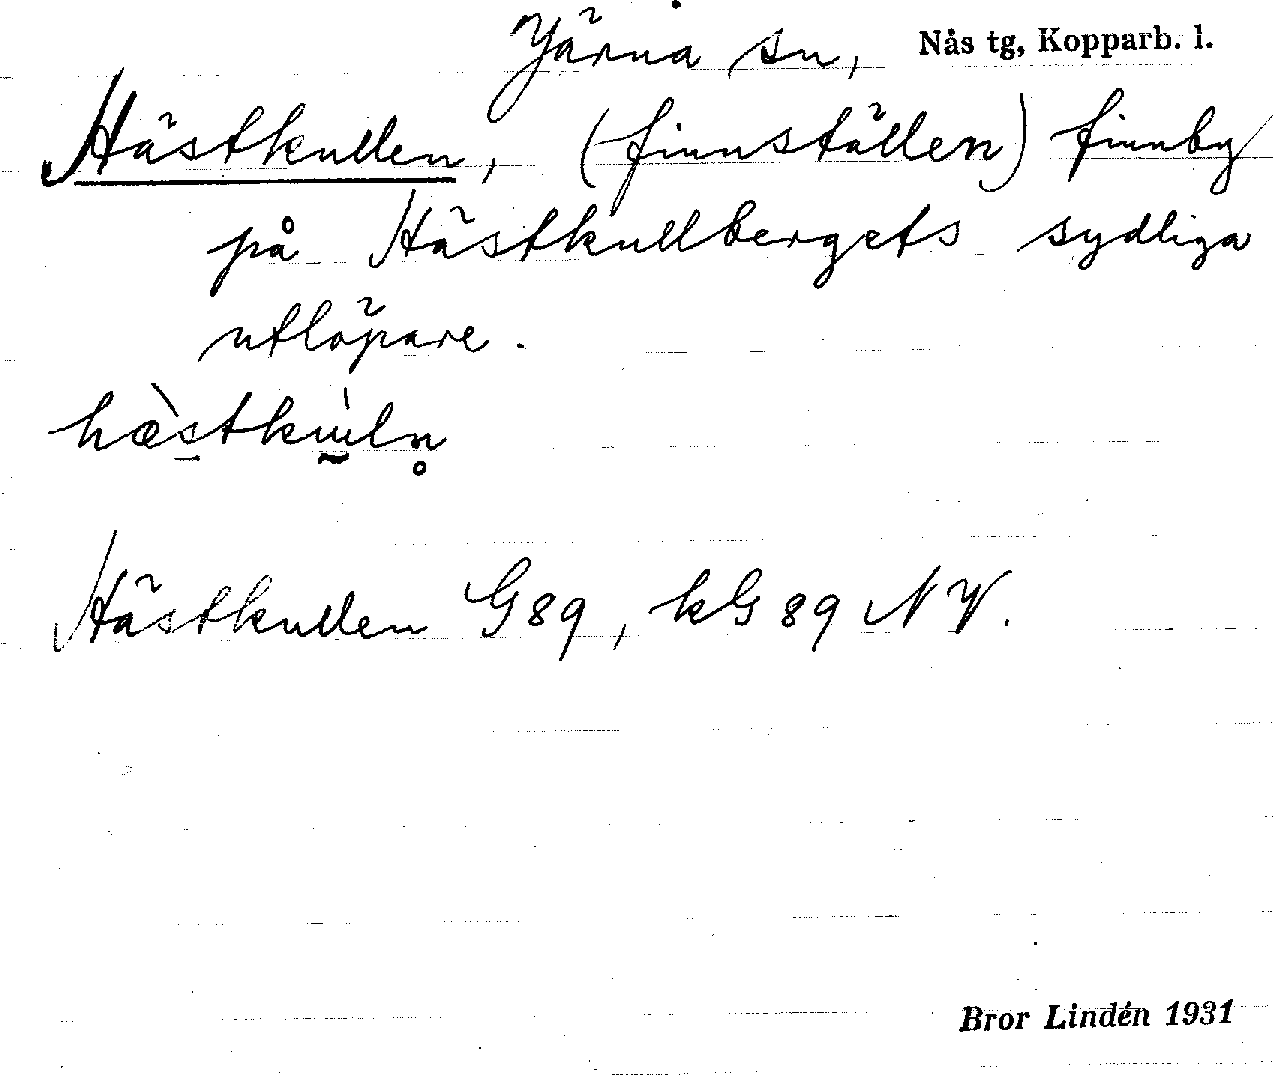 Järna sn, Nås tg, Kopparb. l.
Hästkullen, (finnställen) finnby
på Hästkullbergets sydliga
utlöpare.
hæ̀stkùln̥
Hästkullen G89, kG89 NV.
Bror Lindén 1931